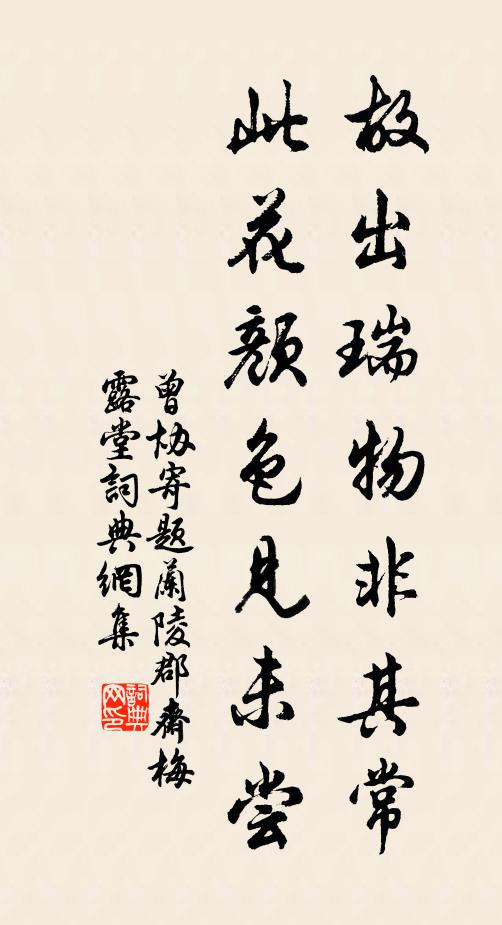 故出瑞物非其常
此花颜色见未尝
曾协寄题蘭陵郡齋梅
露堂詞典網集
詞典网印